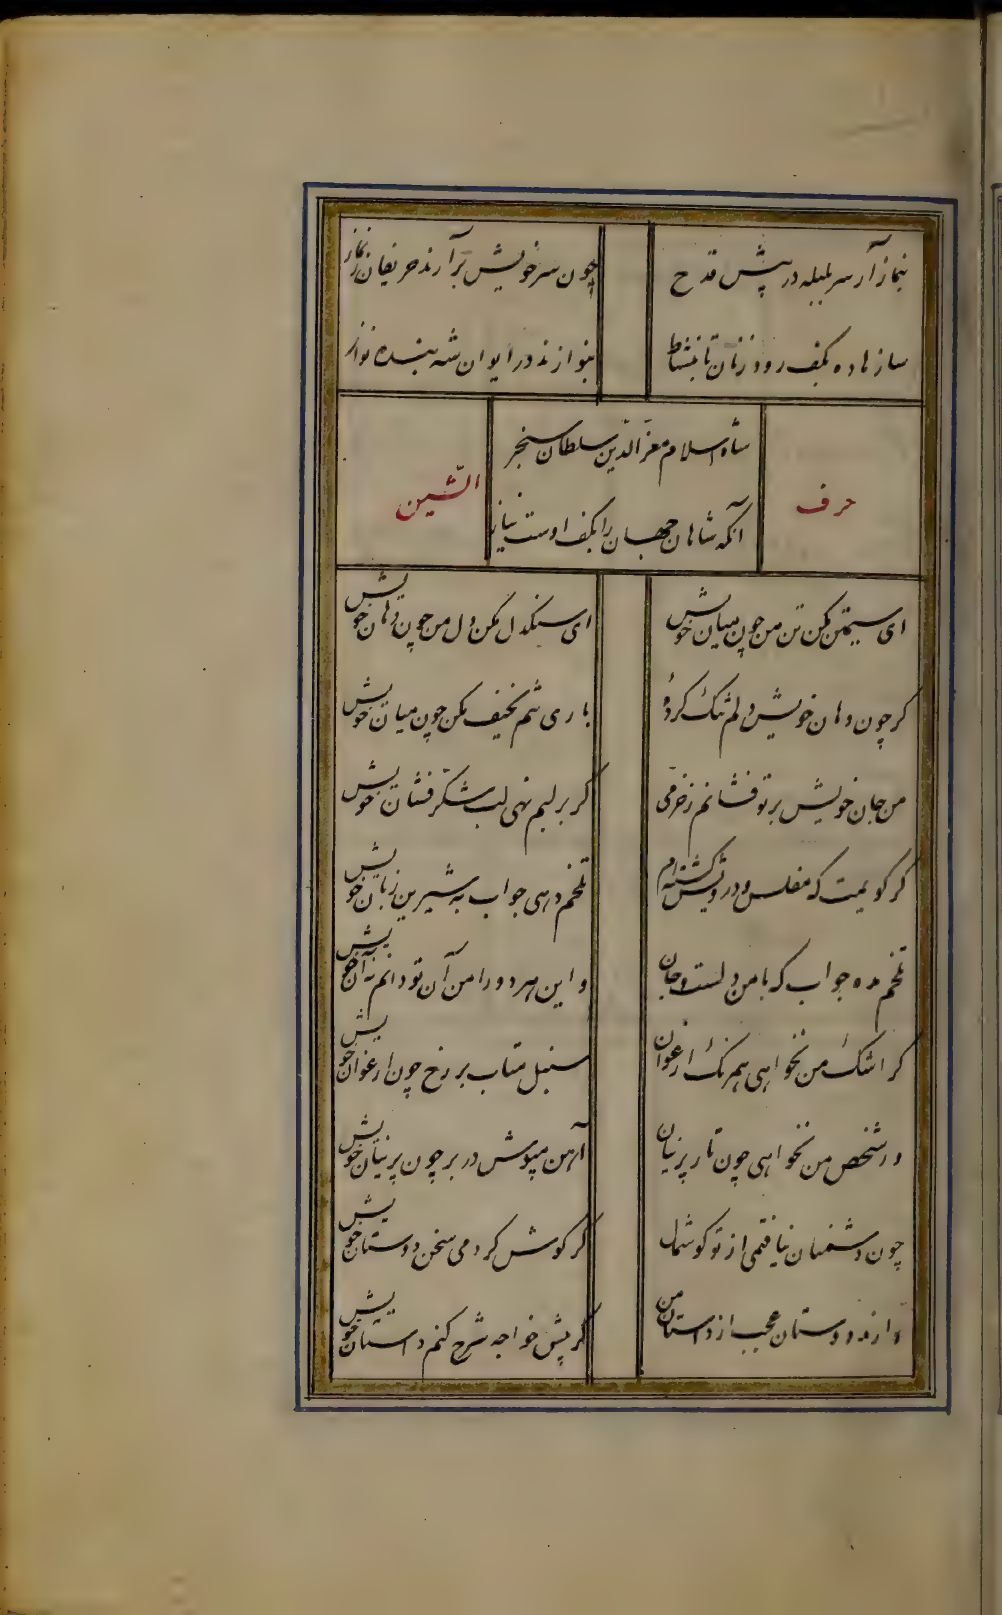 بنماز آر سر بلبله در پیش قدح
چون سر خویش برآرند حریفان ز نماز
ساز ناده بکف رود زنان تا بنشاط
بنوازند در ایوان شه بنده نواز
شاه اسلام معز الدین سلطان سنجر
انکه شاهان جهان را بکف اوست نیاز
حرف
الشین
ای سیمتن مکن تن من چون میان خویش
ای سنکدل مکن دل من چون دهان خویش
کر چون دهان خویش دلم تنک کرده
باری تنم نحیف مکن چون میان خویش
من جان خویش بر تو فشانم ز خرمی
کر بر لبم نهی لب شکرفشان خویش
کر کویمت که مفلس و درویش کشته‌ام
تلخم دهی جواب به شیرین زبان خویش
تلخم مده جواب که با من دلست و جان
و این هر دو را من آن تو دانم نه آن خویش
کر اشک من نخواهی همرنک ارغوان
سنبل متاب بر رخ چون ارغوان خویش
ور شخص من نخواهی چون تار پرنیان
آهن مپوش در بر چون پرنیان خویش
چون دشمنان نیافتمی از تو کوشمال
کر کوش کردمی سخن دوستان خویش
دارند دوستان عجب از داستان من
کر پیش خواجه شرح کنم داستان خویش